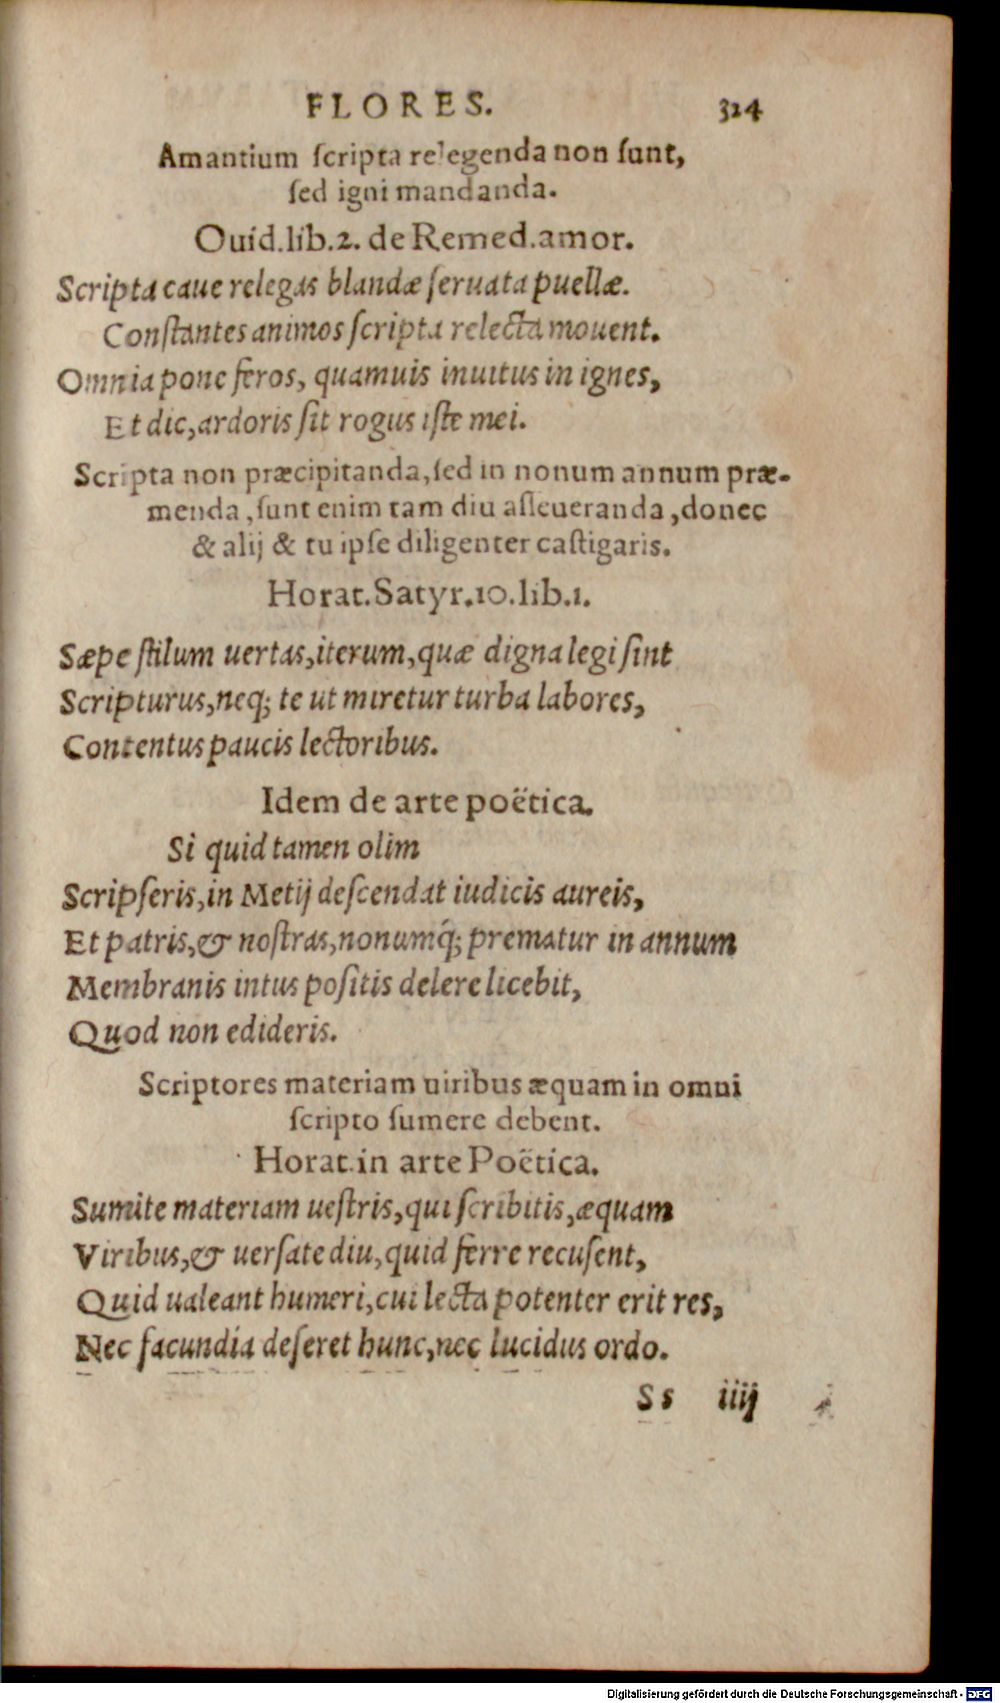 FLORES. 324
Amantium ſcripta relegenda non ſunt,
ſed igni mandanda.
Ouid.lib.2. de Remed.amor.
Scripta caue relegas blandæ ſeruata puellæ.
Conſtantes animos ſcripta relecta mouent.
Omnia pone feros, quamuis inuitus in ignes,
Et dic, ardoris ſit rogus iſte mei.
Scripta non præcipitanda, ſed in nonum annum præ-
menda, ſunt enim tam diu aſſeueranda, donec
& alij & tu ipſe diligenter caſtigaris.
Horat.Satyr.10.lib.1.
Sæpe ſtilum uertas, iterum, quæ digna legi ſint
Scripturus, neq; te ut miretur turba labores,
Contentus paucis lectoribus.
Idem de arte poëtica.
Si quid tamen olim
Scripſeris, in Metij deſcendat iudicis aureis,
Et patris, & noſtras, nonumq́; prematur in annum
Membranis intus poſitis delere licebit,
Quod non edideris.
Scriptores materiam uiribus æquam in omni
ſcripto ſumere debent.
Horat.in arte Poëtica.
Sumite materiam ueſtris, qui ſcribitis, æquam
Viribus, & uerſate diu, quid ferre recuſent,
Quid ualeant humeri, cui lecta potenter erit res,
Nec facundia deſeret hunc, nec lucidus ordo.
Ss iiij
Digitalisierung gefördert durch die Deutsche Forschungsgemeinschaft - DFG